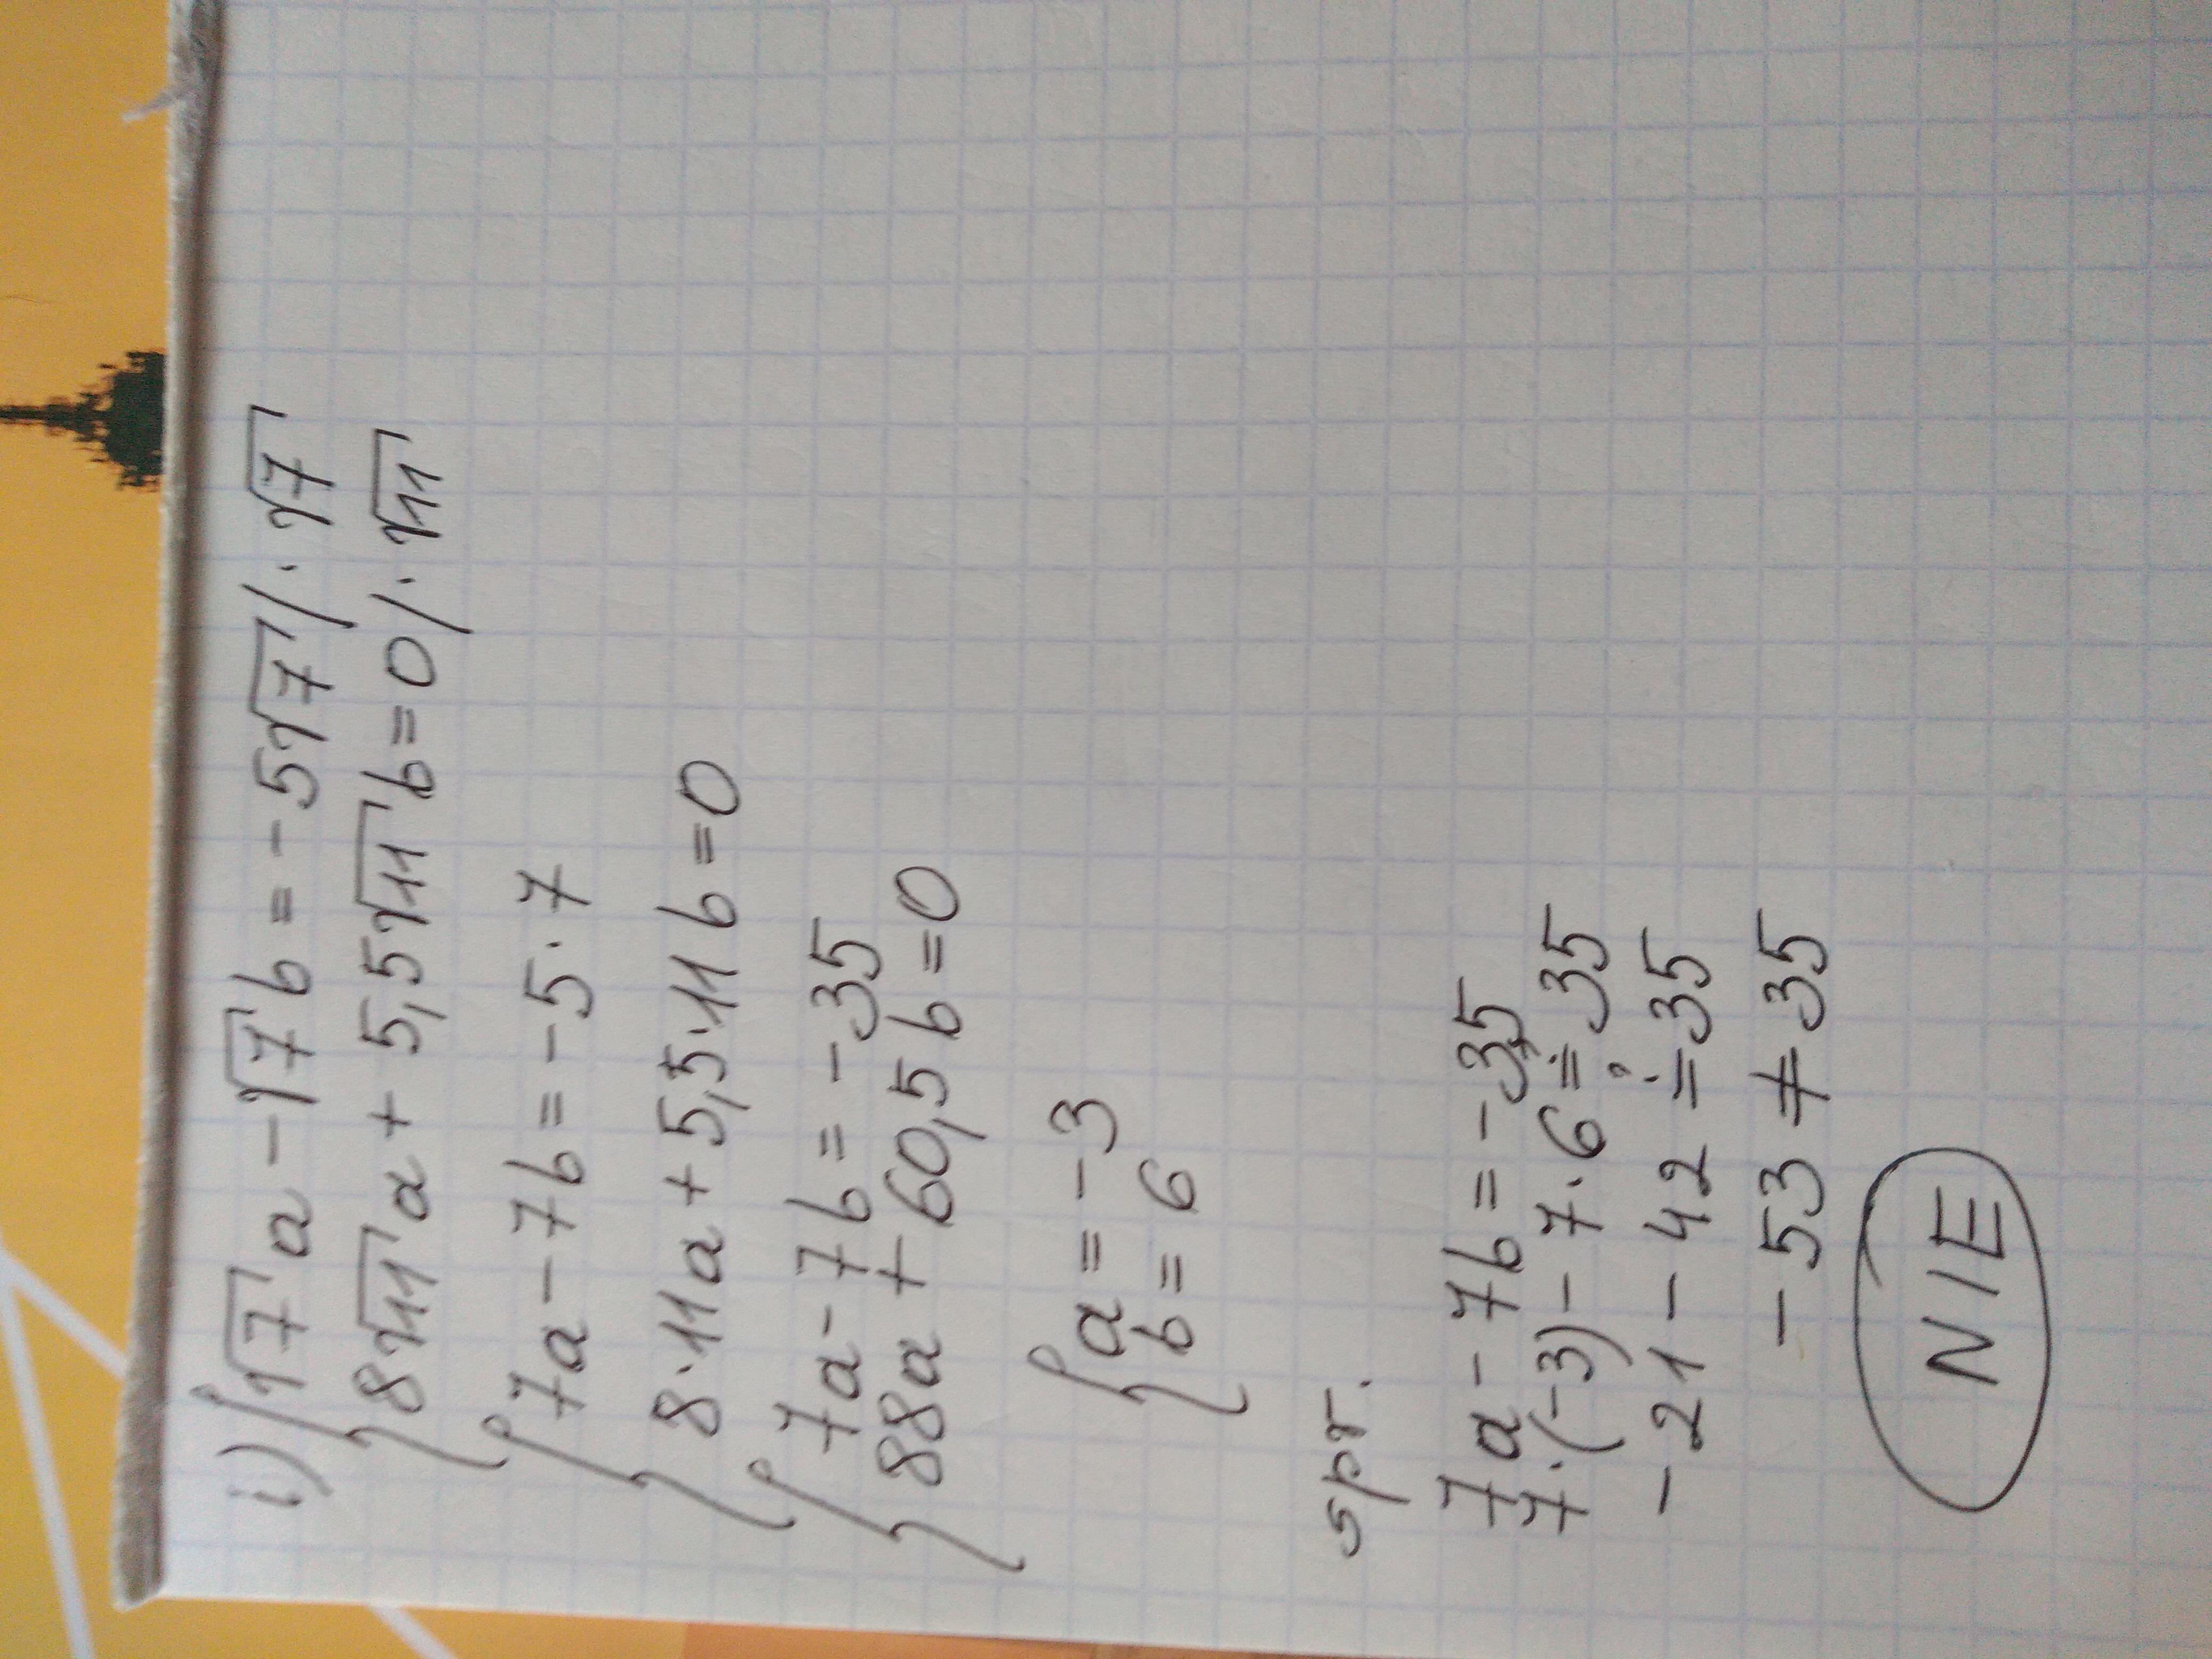 i) { √7 a - √7 b = -5√7 / · √7
8√11 a + 5,5√11 b = 0 / · √11
{ 7a - 7b = -5 · 7
8 · 11a + 5,5 · 11 b = 0
{ 7a - 7b = -35
88a + 60,5 b = 0
{ a = -3
b = 6
spr.
7a - 7b = -35
7 · (-3) - 7 · 6 ≟ 35
-21 - 42 ≟ 35
-53 ≠ 35
NIE